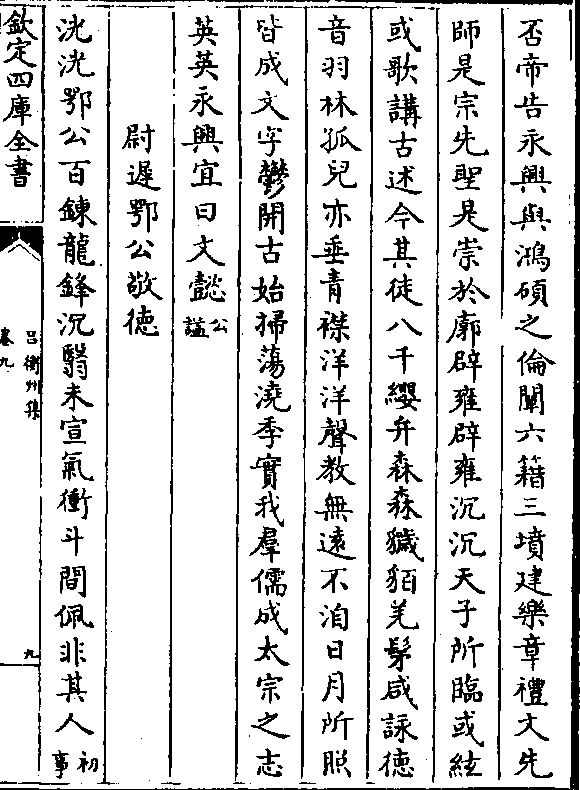 否帝告永興與鴻碩之倫闡六籍三墳建樂章禮文先
師是宗先聖是崇於廓辟雍辟雍沉沉天子所臨或絃
或歌講古述今其徒八千纓弁森森獩貊羌髳咸詠德
音羽林孤兒亦垂青襟洋洋聲教無遠不洎日月所照
皆成文字鬱開古始掃蕩澆季實我羣儒成太宗之志
英英永興宜曰文懿公謚
尉遲鄂公敬德
洸洸鄂公百鍊龍鋒沉翳未宣氣衝斗間佩非其人初事
欽定四庫全書
吕衡州集
卷九
九